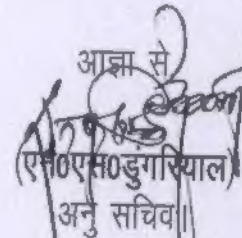 आज्ञा से
(एस0एस0डुंगरियाल)
अनु सचिव।